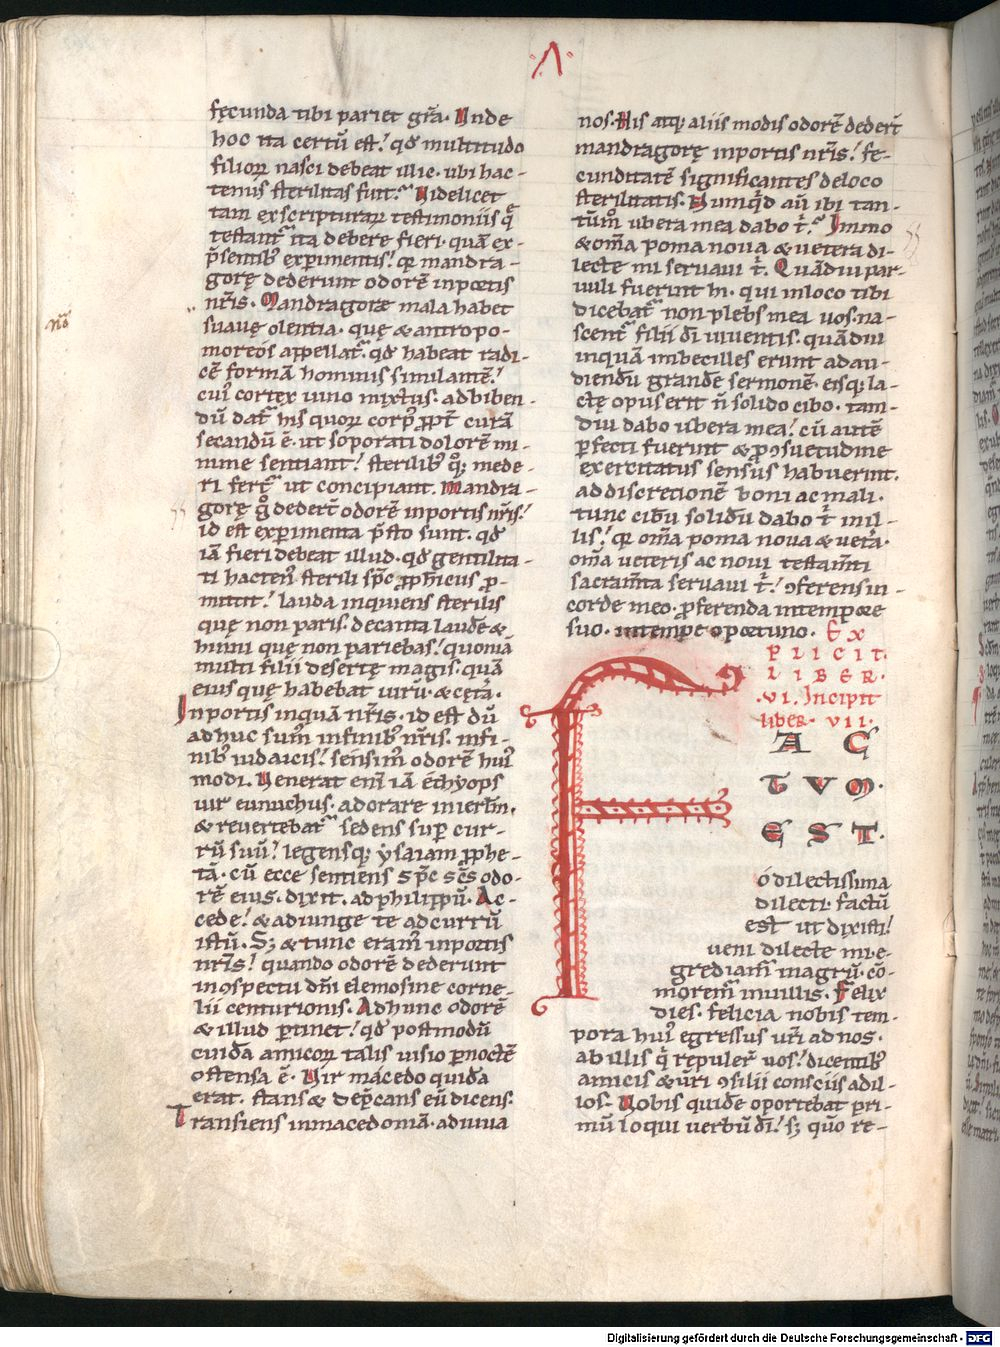 Λ
fęcunda tibi pariet gr̄a. Unde
hoc ita certū est! qđ multitudo
filioꝝ nasci debeat illic. ubi hac-
tenus sterilitas fuit. Videlicet
tam ex scripturarꝝ testimoniis q̄
testant᷑ ita debere fieri. quā ex-
p̄sentib; experimentis! q̄ mandra-
gorę dederunt odorē in portis
nr̄is. Mandragorae mala habet
suaue olentia. quę & antropo-
moreos appellat᷑. qđ habeat radi-
cē formā hominis similantē!
cui᷒ cortex uino mixtus. ad biben-
dū dat᷑ his quoꝝ corp᷒ ꝓpt̄ curā
secandū ē. ut soporati dolorē mi-
nime sentiant! sterilib; qͦꝫ mede-
ri fert᷑ ut concipiant. Mandra-
gorę gͦ dedert̄ odorē in portis nr̄is!
id est experimenta p̄sto sunt. qđ
iā fieri debeat illud. qđ gentilita-
ti hacten᷒ sterili sp̄c ꝓph̄icus ꝓ-
mittit! lauda inquiens sterilis
quę non paris. decanta laudē &
hinni quę non pariebas! quoniā
multi filii desertę magis. quā
eius quę habebat uirū. & cęt̄a.
In portis inquā nr̄is. id est dū
adhuc sum᷒ in finib; nr̄is. in fi-
nib; iudaicis! sensim᷒ odorē hui᷒
modi. Venerat eni iā ęthyops
uir eunuchus. adorare in ierlm̄.
& reuertebat᷑ sedens super cur-
rū suū! legensq; ysaiam ꝓphe-
tā. cū ecce sentiens sp̄c sc̄s odo-
rē eius. dixit. ad philippū. Ac-
cede! & adiunge te ad currū
istū. Sꝫ & tunc eram᷒ in portis
nr̄is! quando odorē dederunt
in ɔspectu dn̄i elemosine corne-
lii centurionis. Ad hunc odorē
& illud ꝑtinet! qđ postmodū
cuidā amicoꝝ talis uisio ꝑ noctē
ostensa ē. Vir macedo quidā
erat. stans & dep̄cans eū dicens.
Transiens in macedoniā. adiuua
nos. His atq; aliis modis odorē dedert̄
mandragorę in portis nr̄is! fe-
cunditatē significantes de loco
sterilitatis. Numqͥd aū ibi tan-
tūm᷒ ubera mea dabo tͥ. Immo
& om̄a poma noua & uetera di-
lecte mi seruaui tͥ. Quādiu par-
uuli fuerint hi. qui in loco tibi
dicebat᷑ non plebs mea uos. na-
scent᷑ filii dī uiuentis. quādiu
inquā imbecilles erunt ad au-
diendū grandē sermonē. eisq; la-
ctę opus erit n̄ solido cibo. tam-
diu dabo ubera mea! cū autē
ꝑfecti fuerint & ꝓ ɔsuetudine
exercitatus sensus habuerint.
ad discretionē boni ac mali.
tunc cibū solidū dabo tͥ in il-
lis! q̄ om̄a poma noua & uet̄a.
om̄a ueteris ac noui testam̄ti
sacram̄ta seruaui tͥ! ɔferens in
corde meo. ꝓferenda in tempore
suo. in tempe oportuno. Ex
PLICIT.
LIBER.
.VI. Incipit
liber. VII.
FAC
TVM.
EST.
ó dilectissima
dilecti. factū
est ut dixisti!
ueni dilecte mi e-
grediam᷒ in agrū. cō-
morem᷒ in uillis. Felix
dies. felicia nobis tem-
pora hui᷒ egressus ur̄i ad nos.
ab illis qͥ repuler̄ uos! dicentib;
amicis & ur̄i ɔsilii consciis ad il-
los. Vobis quidē oportebat pri-
mū loqui uerbū dī! sꝫ quō re-
Digitalisierung gefördert durch die Deutsche Forschungsgemeinschaft - DFG